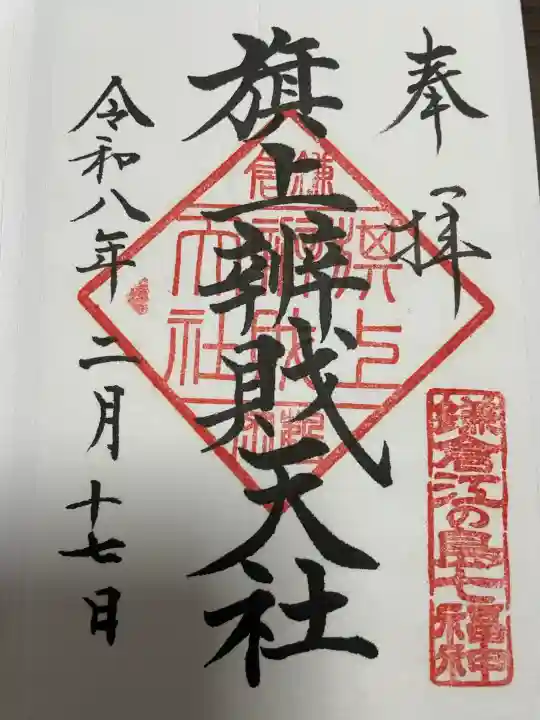 奉拝
鎌倉江の島七福神
旗上辨財天社
鎌倉
旗上
辨財
天社
令和八年二月十七日